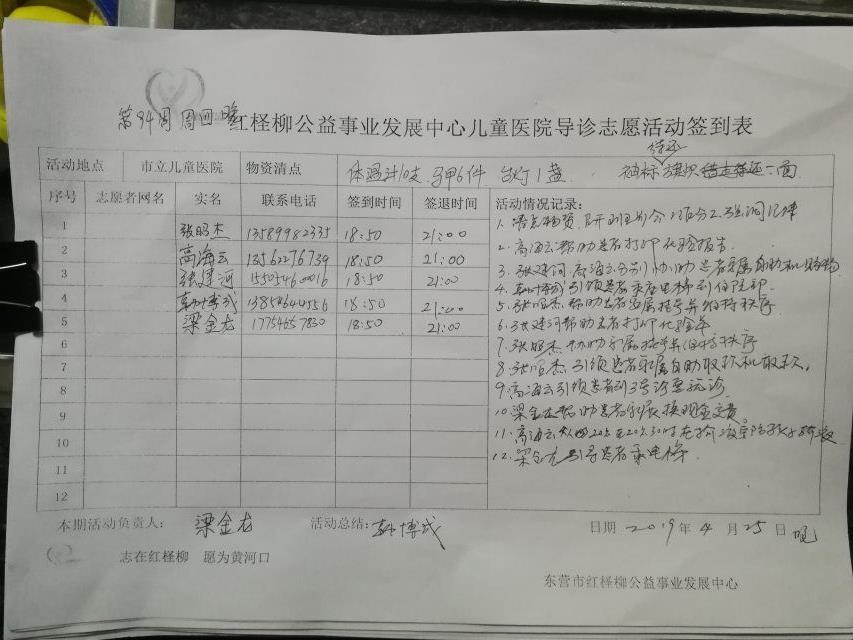 第94周 周四晚 红柽柳公益事业发展中心儿童医院导诊志愿活动签到表
活动地点 市立儿童医院 物资清点 体温计10支 马甲6件 台灯1盏 袖标 旗帜 一面
序号 志愿者网名 实名 联系电话 签到时间 签退时间 活动情况记录:
1 张昭杰 13589982335 18:50 21:00
2 高海云 13562276739 18:50 21:00
3 张建河 15505460016 18:50 21:00
4 18:50 21:00
5 梁金龙 17754657830 18:50 21:00
6
7
8
9
10
11
12
1.清点物资,
2.高海云帮助患者打印化验报告
3.张建河、高海云分别协助患者家属自助机
4. 引领患者乘电梯到住院部
5.张昭杰帮助患者家属挂号并维持秩序
6.张建河帮助患者打印化验单
7.张昭杰协助家属挂号并维持秩序
8.张昭杰引领患者家属自助取款机取款,
9.高海云引领患者到3号诊室就诊
10.梁金龙帮助患者家属换现金交费
11.高海云
12.梁金龙引导患者乘电梯
本期活动负责人: 梁金龙 活动总结: 日期 2019年4月25日晚
志在红柽柳 愿为黄河口
东营市红柽柳公益事业发展中心